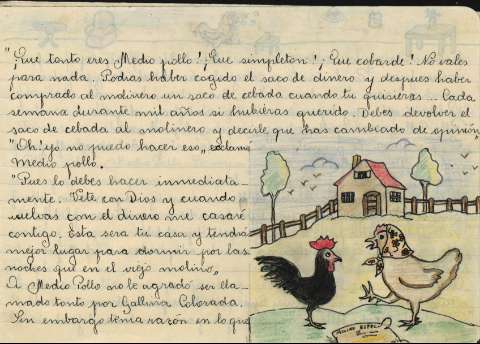 "¡Que tanto eres Medio pollo! ¡Que simpleton! ¡Que cobarde! No vales
para nada. Podias haber cogido el saco de dinero y despues haber
comprado al molinero un saco de cebada cuando tu quisieras... Cada
semana durante mil años si hubieras querido. Debes devolver el
saco de cebada al molinero y decirle que has cambiado de opinión,
"Oh! yo no puedo hacer eso, exclamó
Medio pollo.
"Pues lo debes hacer inmediata-
mente. Vete con Dios y cuando
vuelvas con el dinero me casaré
contigo. Esta será tu casa y tendrás
mejor lugar para dormir por las
noches que en el viejo molino,,
A Medio Pollo no le agradó ser lla-
mado tonto por Gallina Colorada.
Sin embargo tenia razón en lo que